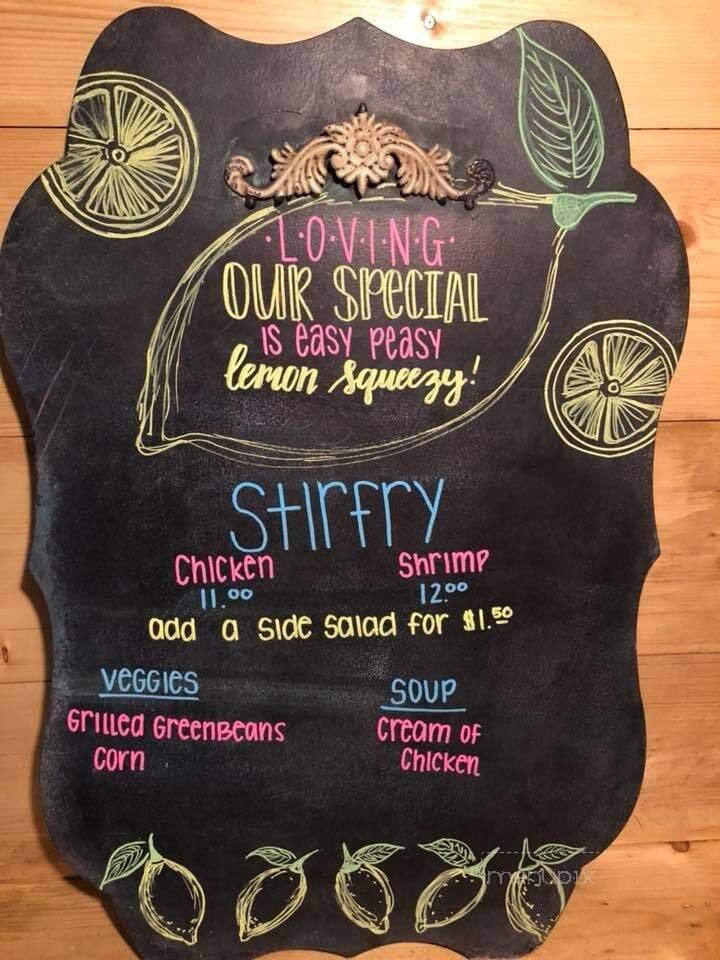 ·L·O·V·I·N·G·
OUR SPECIAL
IS easy PEASY
lemon squeezy!
Stirfry
Chicken Shrimp
11.00 12.00
add a side salad for $1.50
VEGGIES SOUP
Grilled GreenBeans Cream of
Corn Chicken
menupix